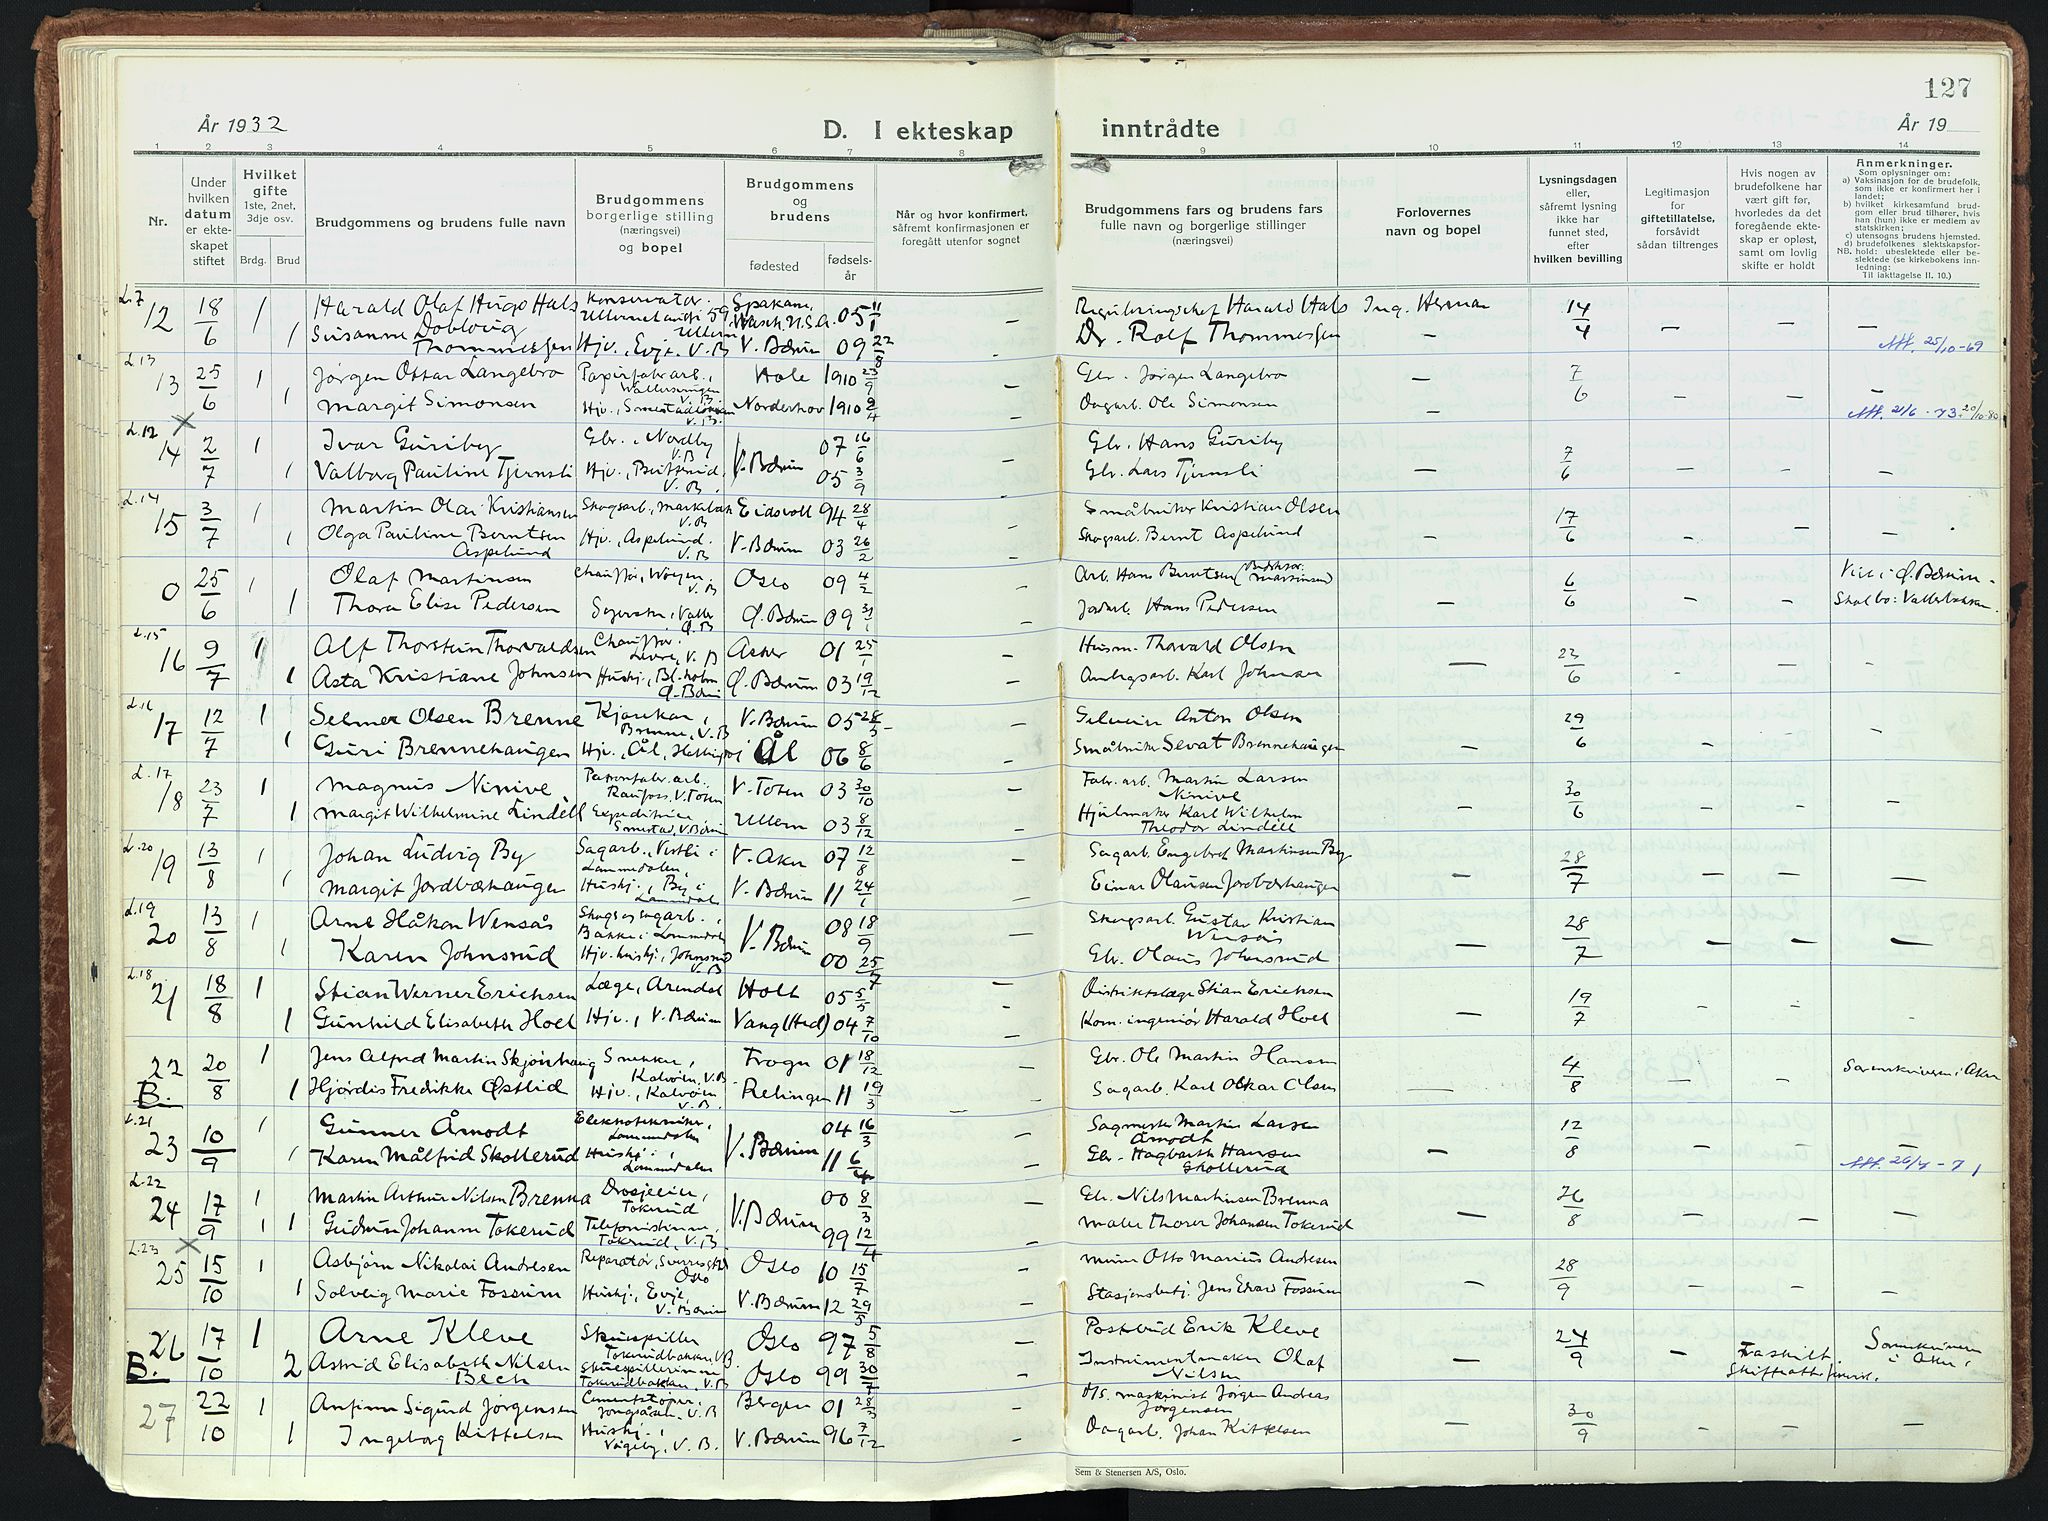 127
År 1932
D. I ekteskap inntrådte
År 19
1 2 3 4 5 6 7 8 9 10 11 12 13 14
Nr.
Under hvilken datum er ekteskapet stiftet
Hvilket gifte 1ste, 2net, 3dje osv.
Brdg. Brud
Brudgommens og brudens fulle navn
Brudgommens borgerlige stilling (næringsvei) og bopel
Brudgommens og brudens
fødested
fødselsår
Når og hvor konfirmert, såfremt konfirmasjonen er foregått utenfor sognet
Brudgommens fars og brudens fars fulle navn og borgerlige stillinger (næringsvei)
Forlovernes navn og bopel
Lysningsdagen eller, såfremt lysning ikke har funnet sted, efter hvilken bevilling
Legitimasjon for giftetillatelse, forsåvidt sådan tiltrenges
Hvis nogen av brudefolkene har vært gift før, hvorledes da det foregående ekteskap er opløst, samt om lovlig skifte er holdt
Anmerkninger.
Som oplysninger om:
a) Vaksinasjon for de brudefolk, som ikke er konfirmert her i landet;
b) hvilket kirkesamfund brudgom eller brud tilhører, hvis han (hun) ikke er medlem av statskirken;
c) utensogns brudens hjemsted.
d) brudefolkenes slektskapsforhold: ubeslektede eller beslektede (se kirkebokens innledning:
NB. Til iakttagelse II. 10.)
L.7
12 18/6 1 Harald Olaf Hugo Hals Konservator. Spokane, Wash. U.S.A. 05 11/1 — Harald Hals Ing. Herman 14/4
1 Susanne Dobloug Thommessen Hjv., Evje, V.B V. Bærum 09 22/8 Dr. Rolf Thommessen — — —
25/10-69
L.13
13 25/6 1 Jørgen Ottar Langebro Papirfabr.arb., V.B Hole 1910 23/9 — Gbr. Jørgen Langebro — 7/6
1 Margit Simonsen Hjv., V.B. Norderhov 1910 9/4 — Dagarb. Ole Simonsen — — — —
21/6-73 20/10-80
L.12
14 2/7 1 Ivar Guriby Gbr., Nordby V.B V. Bærum 07 16/6 — Gbr. Hans Guriby 7/6
1 Valborg Pauline Tjernsli Hjv., V.B. 05 3/9 — Gbr. Lars Tjernsli — — — —
L.14
15 3/7 1 Martin Olai Kristiansen Skogsarb., V.B Eidsvoll 94 28/4 — Småbruker Kristian Olsen 17/6
1 Olga Pauline Berntsen Aspelund Hjv., Aspelund. V.B V. Bærum 03 26/2 — Skogsarb. Bernt Aspelund — — —
0 25/6 1 Olaf Martinsen Chauffør, Wøyen. V.B Oslo 09 4/2 Arb. Hans Berntsen 6/6 Ø. Bærum -
1 Thora Elise Pedersen Syerske, Valler Ø.B Ø. Bærum 09 31/1 — Jordarb. Hans Pedersen — — — Skal bo: Vallerbakken.
L.15
16 9/7 1 Alf Thorstein Thorvaldsen Chauffør. V.B Asker 01 25/1 Husm. Thorvald Olsen 23/6
1 Asta Kristiane Johnsen Hushj., Bl.holm Ø. Bærum Ø. Bærum 03 19/12 — Anlegsarb. Karl Johnsen — - — -
L.16
17 12/7 1 Selmer Olsen Brenne Kjørekar, Brenne, V.B V. Bærum 05 28/5 — Anton Olsen 29/6
1 Guri Brennehaugen Hjv. Ål, Hallingdal Ål 06 8/6 Småbruker Sevat Brennehaugen — — — -
L.17
18 23/7 1 Magnus Ninive Patronfabr.arb. Raufoss. V. Toten V. Toten 03 30/10 — Fabr.arb. Martin Larsen Ninive 30/6
1 Margit Wilhelmine Lindell Expeditrice Smestad, V. Bærum Ullern 03 8/12 — Hjulmaker Karl Wilhelm Theodor Lindell — — — -
L.20
19 13/8 1 Johan Ludvig By Sagarb., Vestli i Lommedalen, V. Aker 07 12/8 — Sagarb. Engebret Martinsen By 28/7
1 Margit Jordbærhaugen Hushj., By i Lommedalen V. Bærum 11 24/1 — Einar Olausen Jordbærhaugen — — — —
L.19
20 13/8 1 Arne Håkon Wensås Skogs og sagarb., Bakke i Lommedalen V. Bærum 08 18/9 — Skogsarb. Gustav Kristian Wensås 28/7
1 Karen Johnsrud Hjv. hushj., Johnsrud V.B 00 25/7 Gbr. Olaus Johnsrud — — — —
L.18
21 18/8 1 Stian Werner Erichsen Læge, Arendal Holt 05 5/5 — Distriktslæge Stian Erichsen 19/7
1 Gunhild Elisabeth Hoel Hjv., V. Bærum Vang (Hed) 04 7/10 — Kom. ingeniør Harald Hoel — - - -
22 B. 20/8 1 Jens Alfred Martin Skjønhaug Snekker, Kalvøen, V.B Frogn 01 18/12 Gbr. Ole Martin Hansen 4/8 Sorenskriveren i Aker
1 Hjørdis Fredrikke Østlid Hjv., Kalvøen V.B. Relingen 11 19/3 — Sagarb. Karl Oskar Olsen — - -
L.21
23 10/9 1 Gunner Årnodt Elektrotekniker, Lommedalen V. Bærum 04 16/3 Sagmester Martin Larsen Årnodt 12/8
1 Karen Målfrid Skollerud Hushj., Lommedalen 11 6/4 Gbr. Hagbarth Hansen Skollerud — — — —
26/4-71
L.22
24 17/9 1 Martin Arthur Nilsen Brenna Drosjeeier, Tokerud V. Bærum 00 8/3 Gbr. Nils Martinsen Brenna 26/8
1 Gudrun Johanne Tokerud Telefonistinne, Tokerud, V.B 99 12/4 — Maler Thorer Johansen Tokerud — — — -
L.23
25 15/10 1 Asbjørn Nikolai Andresen Reparatør, Oslo Oslo 10 15/7 Murer Otto Marius Andresen 28/9
1 Solveig Marie Fossum Hushj., Evje, V. Bærum V. Bærum 12 29/5 — Stasjonsbetj. Jens Edvard Fossum — — — —
26 B. 17/10 1 Arne Kleve Skuespiller Tokerudbakken V.B. Oslo 97 5/8 — Postbud Erik Kleve 24/9 Sorenskriveren i Aker
2 Astrid Elisabeth Nilsen Bech Skuespillerinne Tokerudbakken, V.B Oslo 99 30/7 — Instrumentmaker Olaf Nilsen — — Fraskilt. Skifteattest
27 22/10 1 Anfinn Sigurd Jørgensen Cementstøper, V.B Bergen 01 28/3 D/S. maskinist Jørgen Andreas Jørgensen 30/9
1 Ingeborg Kittelsen Hushj., V.B. V. Bærum 96 7/12 — Dagarb. Johan Kittelsen — — — —
Sem & Stenersen A/S, Oslo.